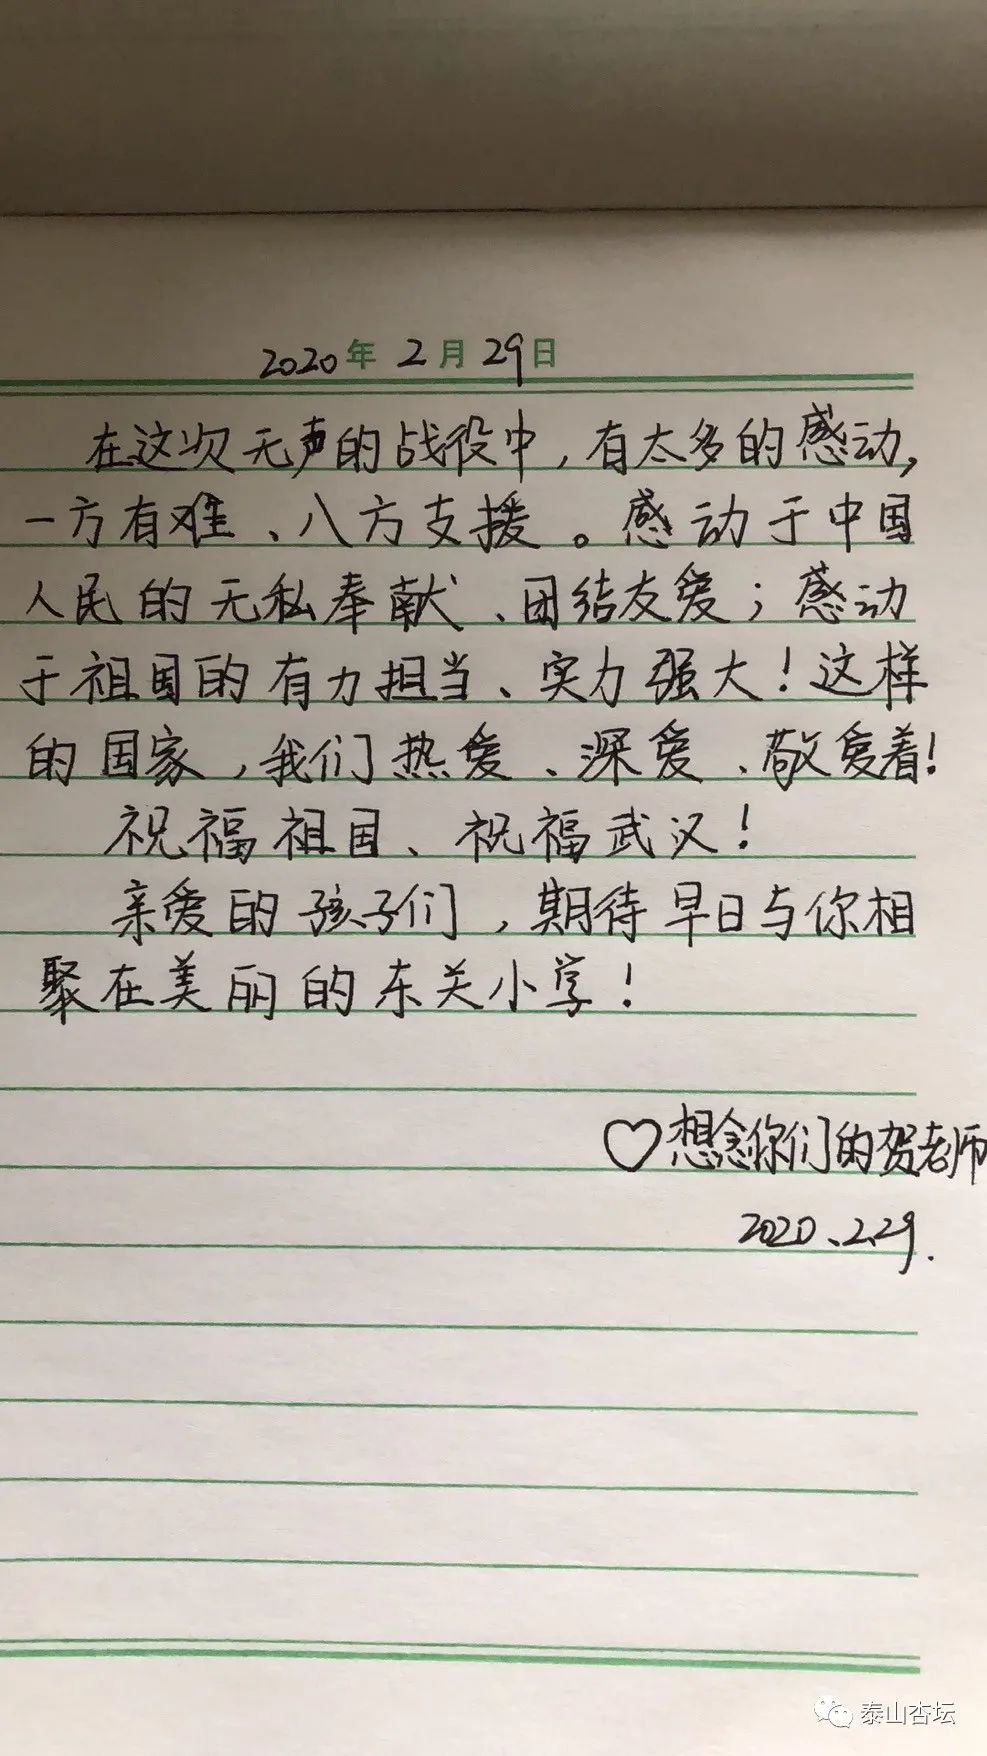 2020年2月29日
在这次无声的战役中,有太多的感动,
一方有难、八方支援。感动于中国
人民的无私奉献、团结友爱;感动
于祖国的有力担当、实力强大!这样
的国家,我们热爱、深爱、敬爱着!
祝福祖国、祝福武汉!
亲爱的孩子们,期待早日与你相
聚在美丽的东关小学!
♡想念你们的贺老师
2020、2.29.
泰山杏坛